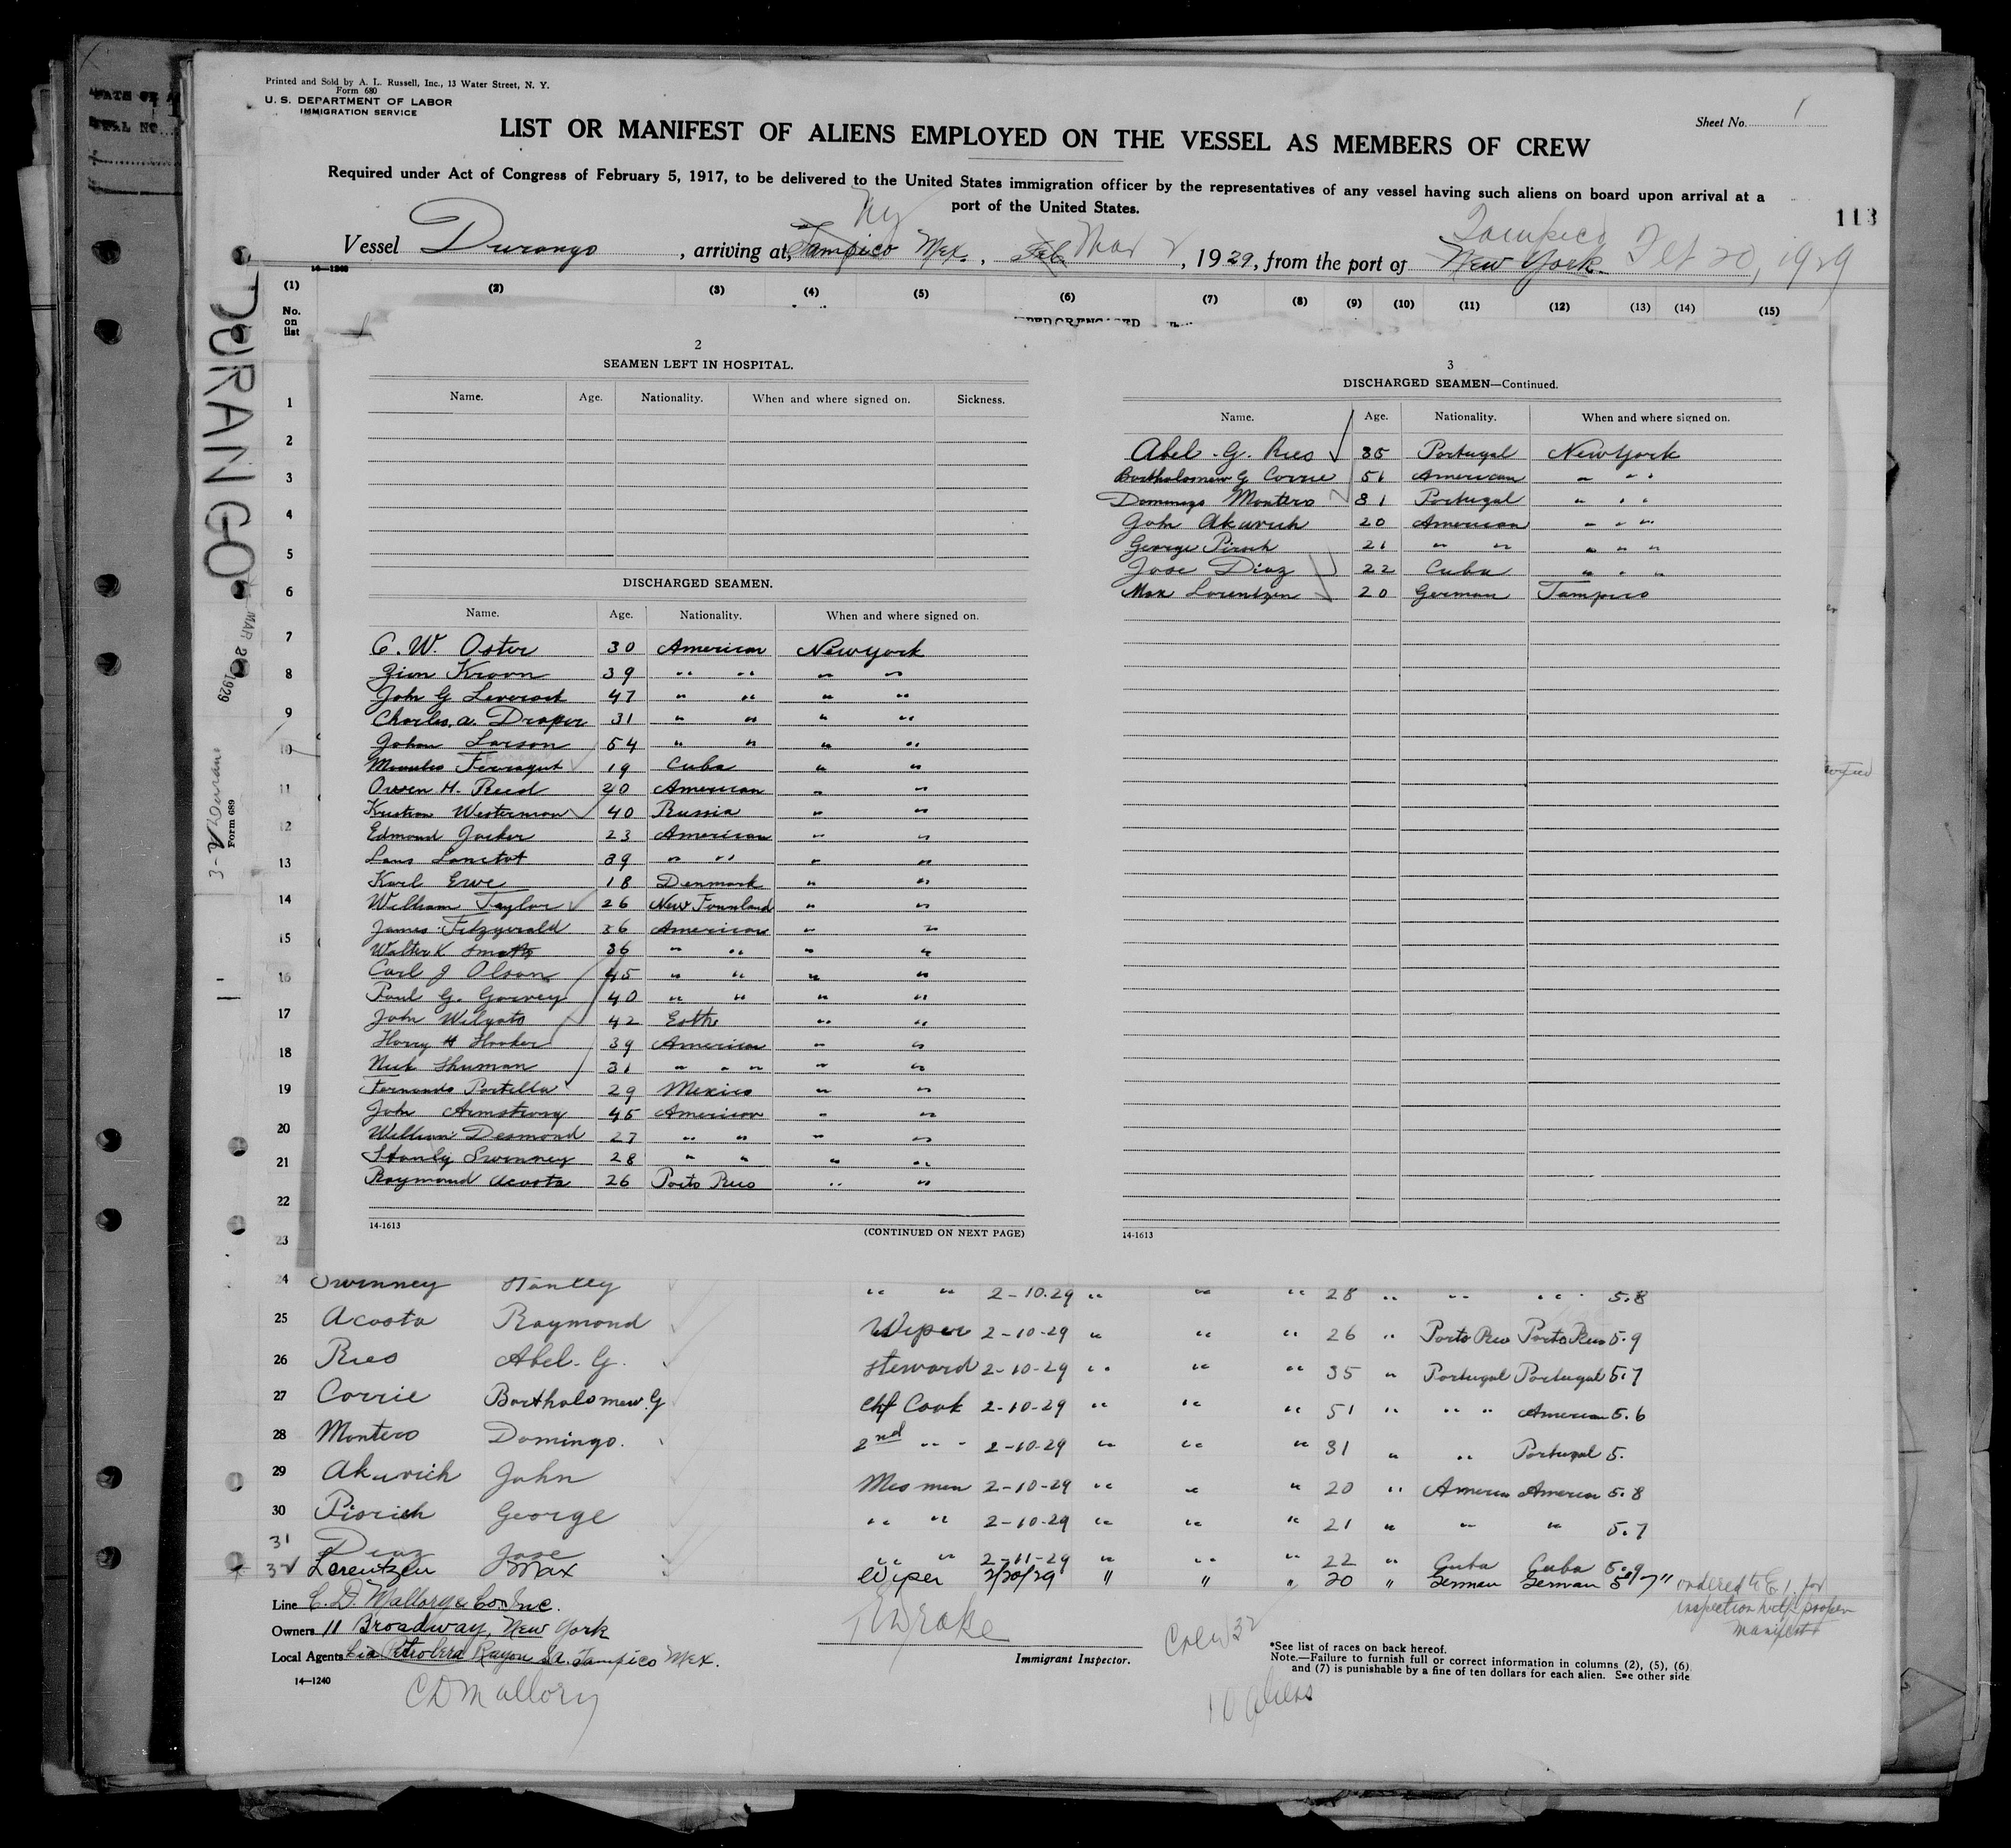 Printed and Sold by A. L. Russell, Inc., 13 Water Street, N. Y.
Form 680
U. S. DEPARTMENT OF LABOR
IMMIGRATION SERVICE
Sheet No. 1
LIST OR MANIFEST OF ALIENS EMPLOYED ON THE VESSEL AS MEMBERS OF CREW
Required under Act of Congress of February 5, 1917, to be delivered to the United States immigration officer by the representatives of any vessel having such aliens on board upon arrival at a
port of the United States.
113
Ny
Tampico
Vessel Durango, arriving at Tampico Mex., Feb Mar 2, 1929, from the port of New York Feb 20, 1929
14-1240
(1) (2) (3) (4) (5) (6) (7) (8) (9) (10) (11) (12) (13) (14) (15)
No.
on
list
DURANGO
MAR 2 1929
Form 689
2
SEAMEN LEFT IN HOSPITAL.
Name. Age. Nationality. When and where signed on. Sickness.
DISCHARGED SEAMEN.
Name. Age. Nationality. When and where signed on.
C. W. Oster 30 American New York
Zion Kroon 39 " " " "
John G Leverock 47 " " " "
Charles. A. Draper 31 " " " "
Johan Larson 54 " " " "
Ferragut 19 Cuba " "
Owen H. Reed 20 American " "
Kristian Westerman 40 Russia " "
Edmond Jacker 23 American " "
Lanctot 39 " " " "
Karl Erve 18 Denmark " "
William Taylor 26 New Founland " "
James Fitzgerald 36 American " "
Walter K Smath 36 " " " "
Carl J Olson 45 " " " "
Paul G. Garvey 40 " " " "
John Welgato 42 Esth " "
Harry H Hooker 39 American " "
Nick Shuman 31 " " " " "
Fernando Portella 29 Mexico " "
John Armstrong 45 American " "
William Desmond 27 " " " "
Stanly Swinney 28 " " " "
Raymond Acosta 26 Porto Rico " "
14-1613 (CONTINUED ON NEXT PAGE)
3
DISCHARGED SEAMEN—Continued.
Name. Age. Nationality. When and where signed on.
Abel. G. Ries 35 Portugal New York
Bartholomew G Corrie 51 American " " "
Domingo Montero 31 Portugal " " "
John Akurich 20 American " " "
George Pirich 21 " " " " "
Jose Diaz 22 Cuba " " "
Max Lorentzen 20 German Tampico
14-1613
1
2
3
4
5
6
7
8
9
10
11
12
13
14
15
16
17
18
19
20
21
22
23
24 Swinney Stanley " " 2-10-29 " " " 28 " " " 5.8
25 Acosta Raymond Wiper 2-10-29 " " " 26 " Porto Rico Porto Rico 5.9
26 Ries Abel. G. Steward 2-10-29 " " " 35 " Portugal Portugal 5.7
27 Corrie Bartholomew. G Chf Cook 2-10-29 " " " 51 " " " American 5.6
28 Montero Domingo. 2nd " " 2-10-29 " " " 31 " " Portugal 5.
29 Akurich John Mes men 2-10-29 " " " 20 " American American 5.8
30 Piorich George " " 2-10-29 " " " 21 " " " 5.7
31 Diaz Jose " " 2-11-29 " " " 22 " Cuba Cuba 5.9
32 Lorentzen Max Wiper 2/20/29 " " " 20 " German German 5' 7"
ordered to E.I. for
inspection with proper
manifest
Line C. D. Mallory & Co. Inc.
Owners 11 Broadway, New York
Local Agents Cia Petrolera Rayon Sa. Tampico Mex.
14—1240
CD Mallory
Drake
Immigrant Inspector.
Crew 32
10 aliens
*See list of races on back hereof.
Note.—Failure to furnish full or correct information in columns (2), (5), (6)
and (7) is punishable by a fine of ten dollars for each alien. See other side